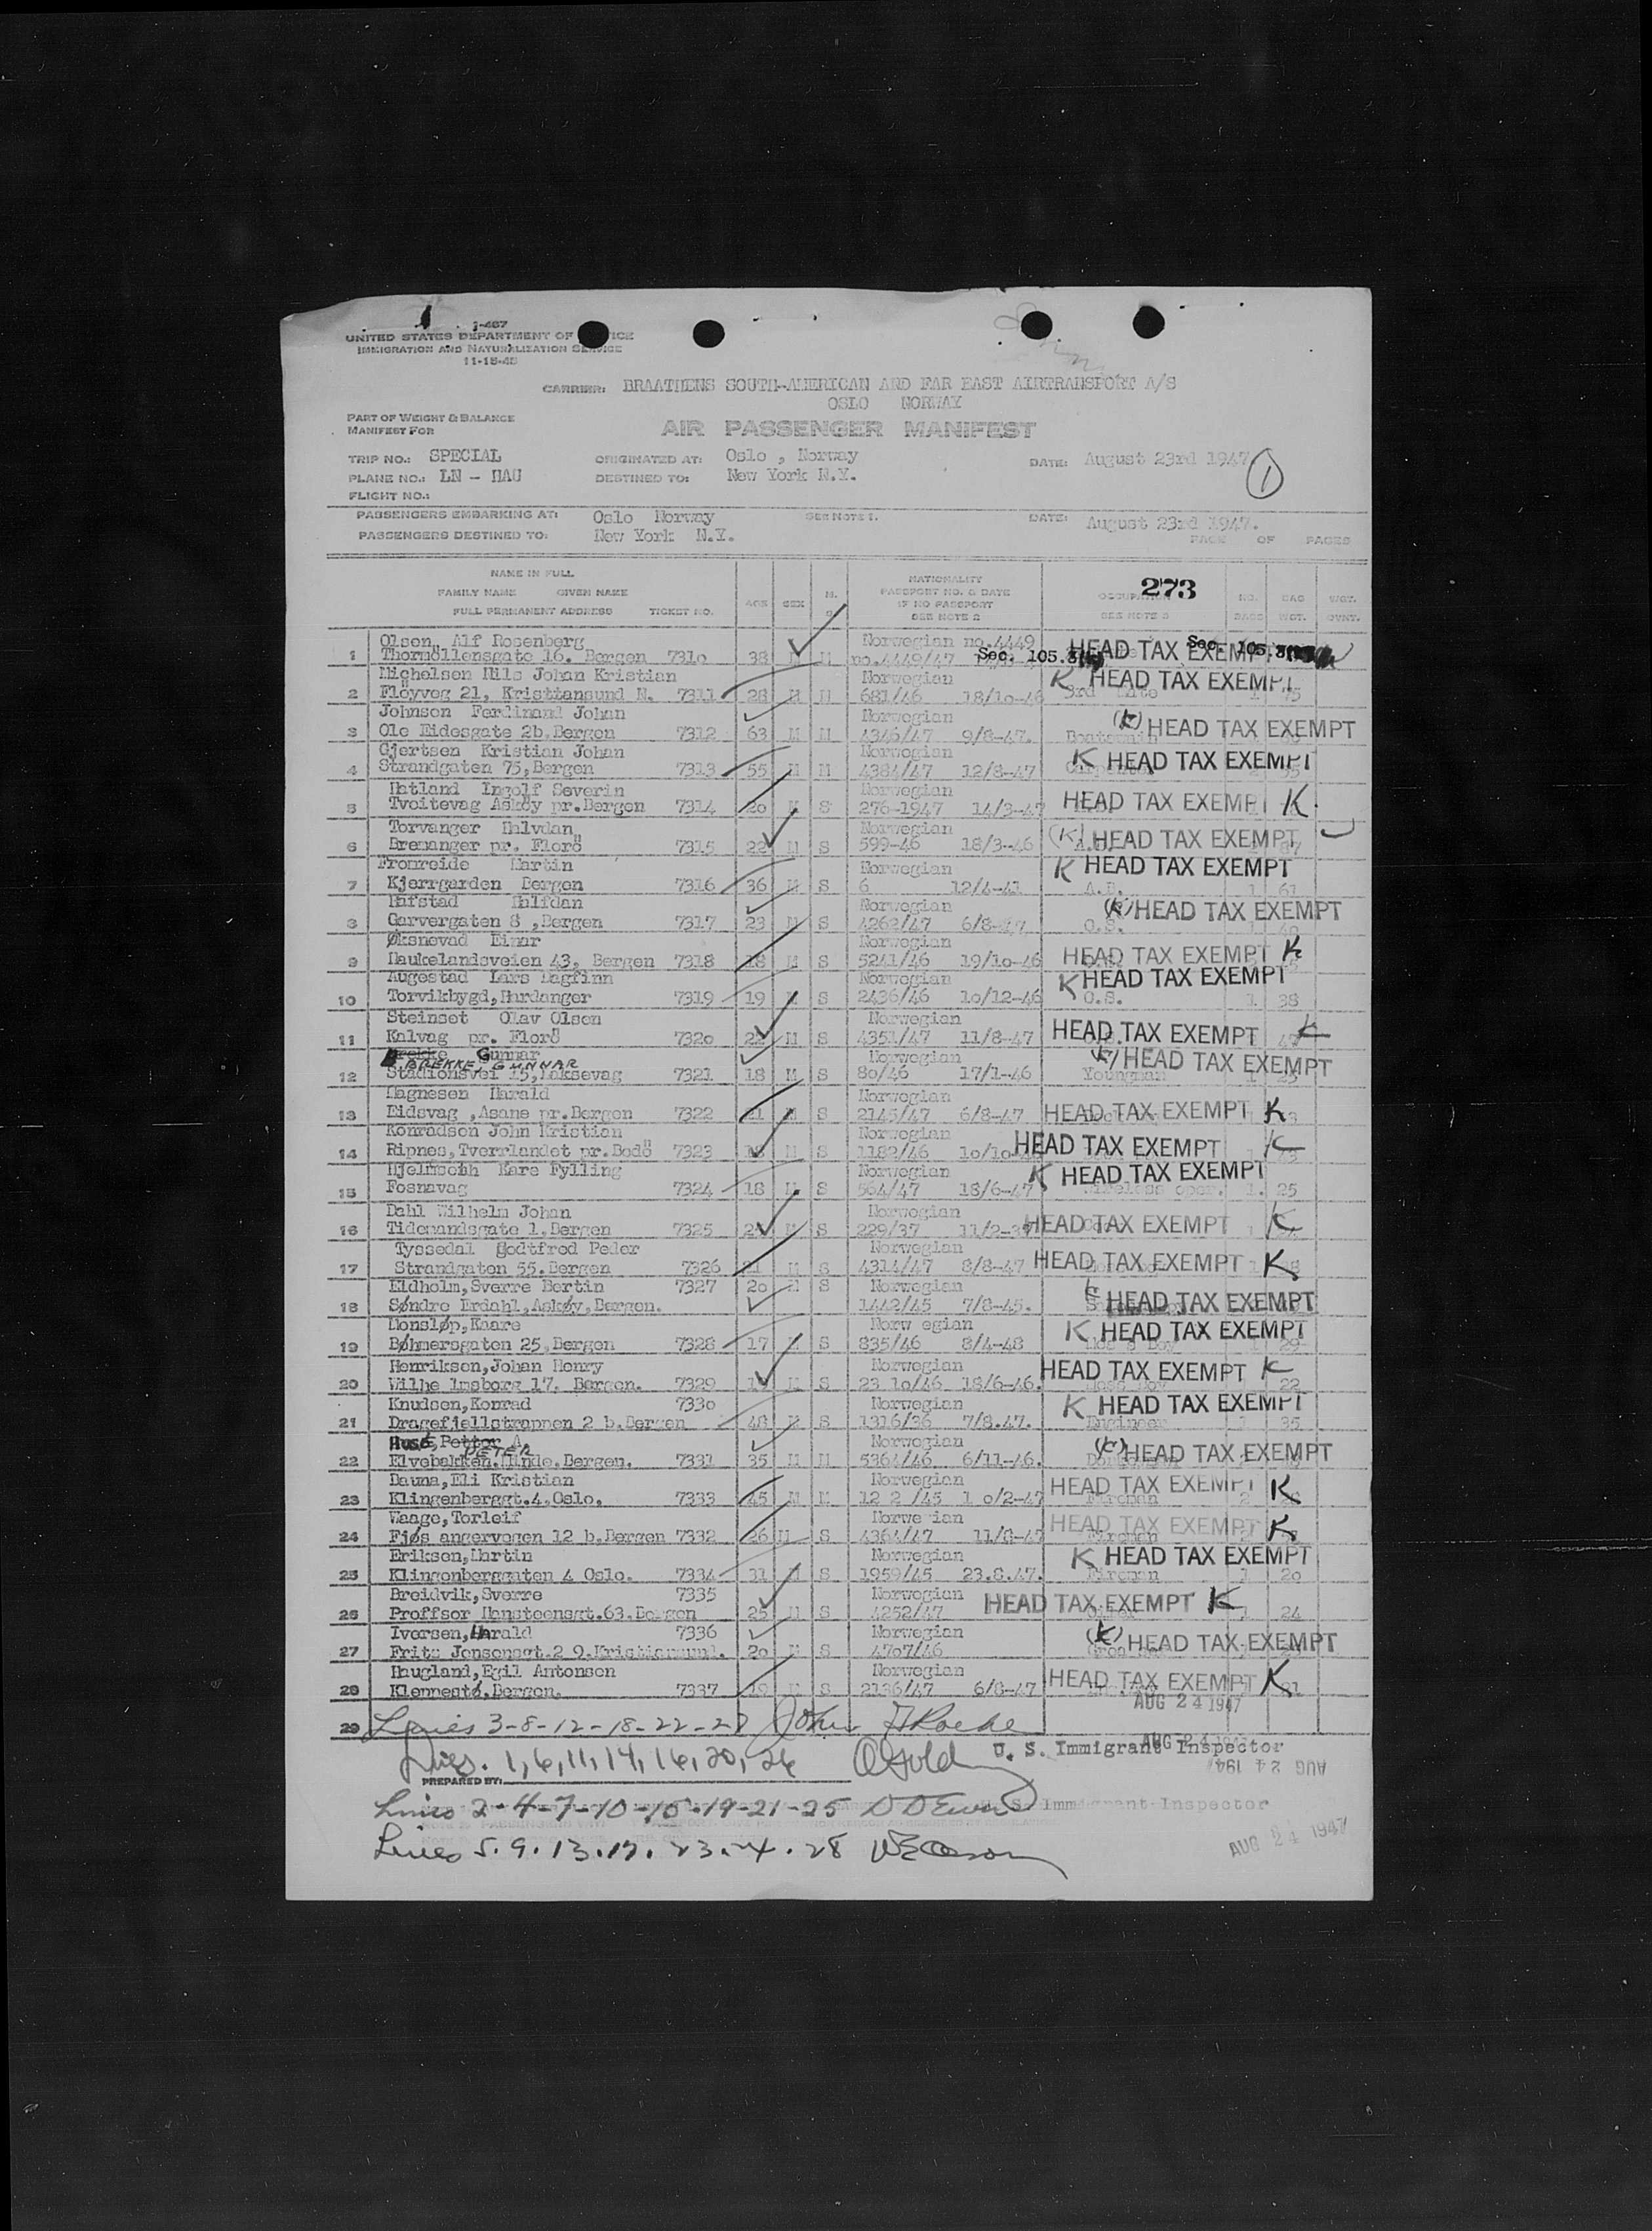 I-467
UNITED STATES DEPARTMENT OF JUSTICE
IMMIGRATION AND NATURALIZATION SERVICE
11-15-45
CARRIER: BRAATHENS SOUTH-AMERICAN AND FAR EAST AIRTRANSPORT A/S
OSLO NORWAY
PART OF WEIGHT & BALANCE
MANIFEST FOR
AIR PASSENGER MANIFEST
TRIP NO.: SPECIAL ORIGINATED AT: Oslo , Norway DATE: August 23rd 1947
PLANE NO.: LN - HAU DESTINED TO: New York N.Y. 1
FLIGHT NO.:
PASSENGERS EMBARKING AT: Oslo Norway SEE NOTE 1. DATE: August 23rd 1947.
PASSENGERS DESTINED TO: New York N.Y. PAGE OF PAGES
NAME IN FULL NATIONALITY 273
FAMILY NAME GIVEN NAME AGE SEX M. PASSPORT NO. & DATE OCCUPATION NO. BAG WGT.
FULL PERMANENT ADDRESS TICKET NO. IF NO PASSPORT SEE NOTE 2 SEE NOTE 3 BAGS WGT.
Olsen, Alf Rosenberg Norwegian no.4449 HEAD TAX EXEMPT Sec. 105.3
1 Thormöllensgate 16. Bergen 7310 38 M M no.4449/47 Sec. 105.3
Michelsen Nils Johan Kristian Norwegian K HEAD TAX EXEMPT
2 Flöyveg 21, Kristiansund N. 7311 28 M M 681/46 18/10-46 3rd Mate 75
Johnson Ferdinand Johan Norwegian (K) HEAD TAX EXEMPT
3 Ole Eidesgate 2b.Bergen 7312 63 M M 4346/47 9/8-47. Boatswain
Gjertsen Kristian Johan Norwegian K HEAD TAX EXEMPT
4 Strandgaten 75,Bergen 7313 55 M M 4384/47 12/8-47 Carpenter
Hatland Ingolf Severin Norwegian HEAD TAX EXEMPT K
5 Tveitevag Asköy pr.Bergen 7314 20 M S 276-1947 14/3-47
Torvanger Halvdan Norwegian (K) HEAD TAX EXEMPT
6 Bremanger pr. Florö 7315 22 M S 599-46 18/3-46 A.B.
Fromreide Martin Norwegian K HEAD TAX EXEMPT
7 Kjerrgarden Bergen 7316 36 M S 6 12/4-41 A.B. 1 61
Hafstad Halfdan Norwegian (K) HEAD TAX EXEMPT
8 Garvergaten 8 ,Bergen 7317 23 M S 4262/47 6/8-47 O.S.
Øksnevad Einar Norwegian HEAD TAX EXEMPT K
9 Haukelandsveien 43, Bergen 7318 18 M S 5241/46 19/10-46
Augestad Lars Dagfinn Norwegian K HEAD TAX EXEMPT
10 Torvikbygd,Hardanger 7319 19 M S 2436/46 10/12-46 O.S. 1 38
Steinset Olav Olsen Norwegian HEAD TAX EXEMPT K
11 Kalvag pr. Florö 7320 22 M S 4351/47 11/8-47
Brekke Gunnar Norwegian (K) HEAD TAX EXEMPT
BREKKE, GUNNAR
12 Stadionsvei 15,Laksevag 7321 18 M S 80/46 17/1-46 Youngman
Magnesen Harald Norwegian
13 Eidsvag ,Asane pr.Bergen 7322 21 M S 2145/47 6/8-47 HEAD TAX EXEMPT K
Konradsen John Kristian Norwegian HEAD TAX EXEMPT K
14 Ripnes,Tverrlandet pr.Bodö 7323 M S 1182/46 10/10
Hjelmseth Kare Fylling Norwegian K HEAD TAX EXEMPT
15 Fosnavag 7324 18 M S 564/47 18/6-47 Wireless oper. 1. 25
Dahl Wilhelm Johan Norwegian HEAD TAX EXEMPT K
16 Tidemandsgate 1,Bergen 7325 M S 229/37 11/2-37
Tyssedal Godtfred Peder Norwegian HEAD TAX EXEMPT K
17 Strandgaten 55.Bergen 7326 21 M S 4314/47 8/8-47
Eidholm,Sverre Bertin 7327 20 M S Norwegian
18 Søndre Erdahl,Askøy,Bergen. 1442/45 7/8-45. K HEAD TAX EXEMPT
Monsløp,Kaare Norw egian K HEAD TAX EXEMPT
19 Bøhmersgaten 25,Bergen 7328 17 M S 835/46 8/4-48 Mess Boy 1 29
Henriksen,Johan Henry Norwegian HEAD TAX EXEMPT K
20 Wilhe lmsborg 17. Bergen. 7329 M S 23 10/46 18/6-46. Mess Boy 22
Knudsen,Konrad 7330 Norwegian K HEAD TAX EXEMPT
21 Dragefjellstrappen 2 b.Bergen 48 M S 1316/36 7/8.47. Engineer 1 35
Husé,Petter A. Norwegian (K) HEAD TAX EXEMPT
PETER
22 Elvebakken.Minde.Bergen. 7331 35 M M 5364/46 6/11-46.
Dauna,Eli Kristian Norwegian HEAD TAX EXEMPT K
23 Klingenberggt.4.Oslo. 7333 45 M M 12 2 /45 1 0/2-47 Fireman 2
Waage,Torleif Norwe ian HEAD TAX EXEMPT K
24 Fjøs angervegen 12 b.Bergen 7332 26 M S 4364/47 11/8-47 Fireman
Eriksen,Martin Norwegian K HEAD TAX EXEMPT
25 Klingenberggaten 4 Oslo. 7334 31 M S 1959/45 23.8.47. Fireman 1 20
Breidvik,Sverre 7335 Norwegian HEAD TAX EXEMPT K
26 Proffsor Hansteensgt.63.Bergen 25 M S 4252/47 1 24
Iversen,Harald 7336 Norwegian (K) HEAD TAX EXEMPT
27 Fritz Jensensgt.2 9.Kristiansund. 20 M S 4707/46
Haugland,Egil Antonsen Norwegian HEAD TAX EXEMPT K
28 Kleppestø,Bergen. 7337 19 M S 2136/47 6/8-47
AUG 24 1947
29 Lines 3-8-12-18-22-27 John
Lines. 1, 6, 11, 14, 16, 20, 26 U. S. Immigrant Inspector
AUG 24 1947
PREPARED BY:
AUG 24 1947
Lines 2-4-7-10-15-19-21-25 U. S. Immigrant Inspector
Lines 5.9.13.17.23.24.28
AUG 24 1947